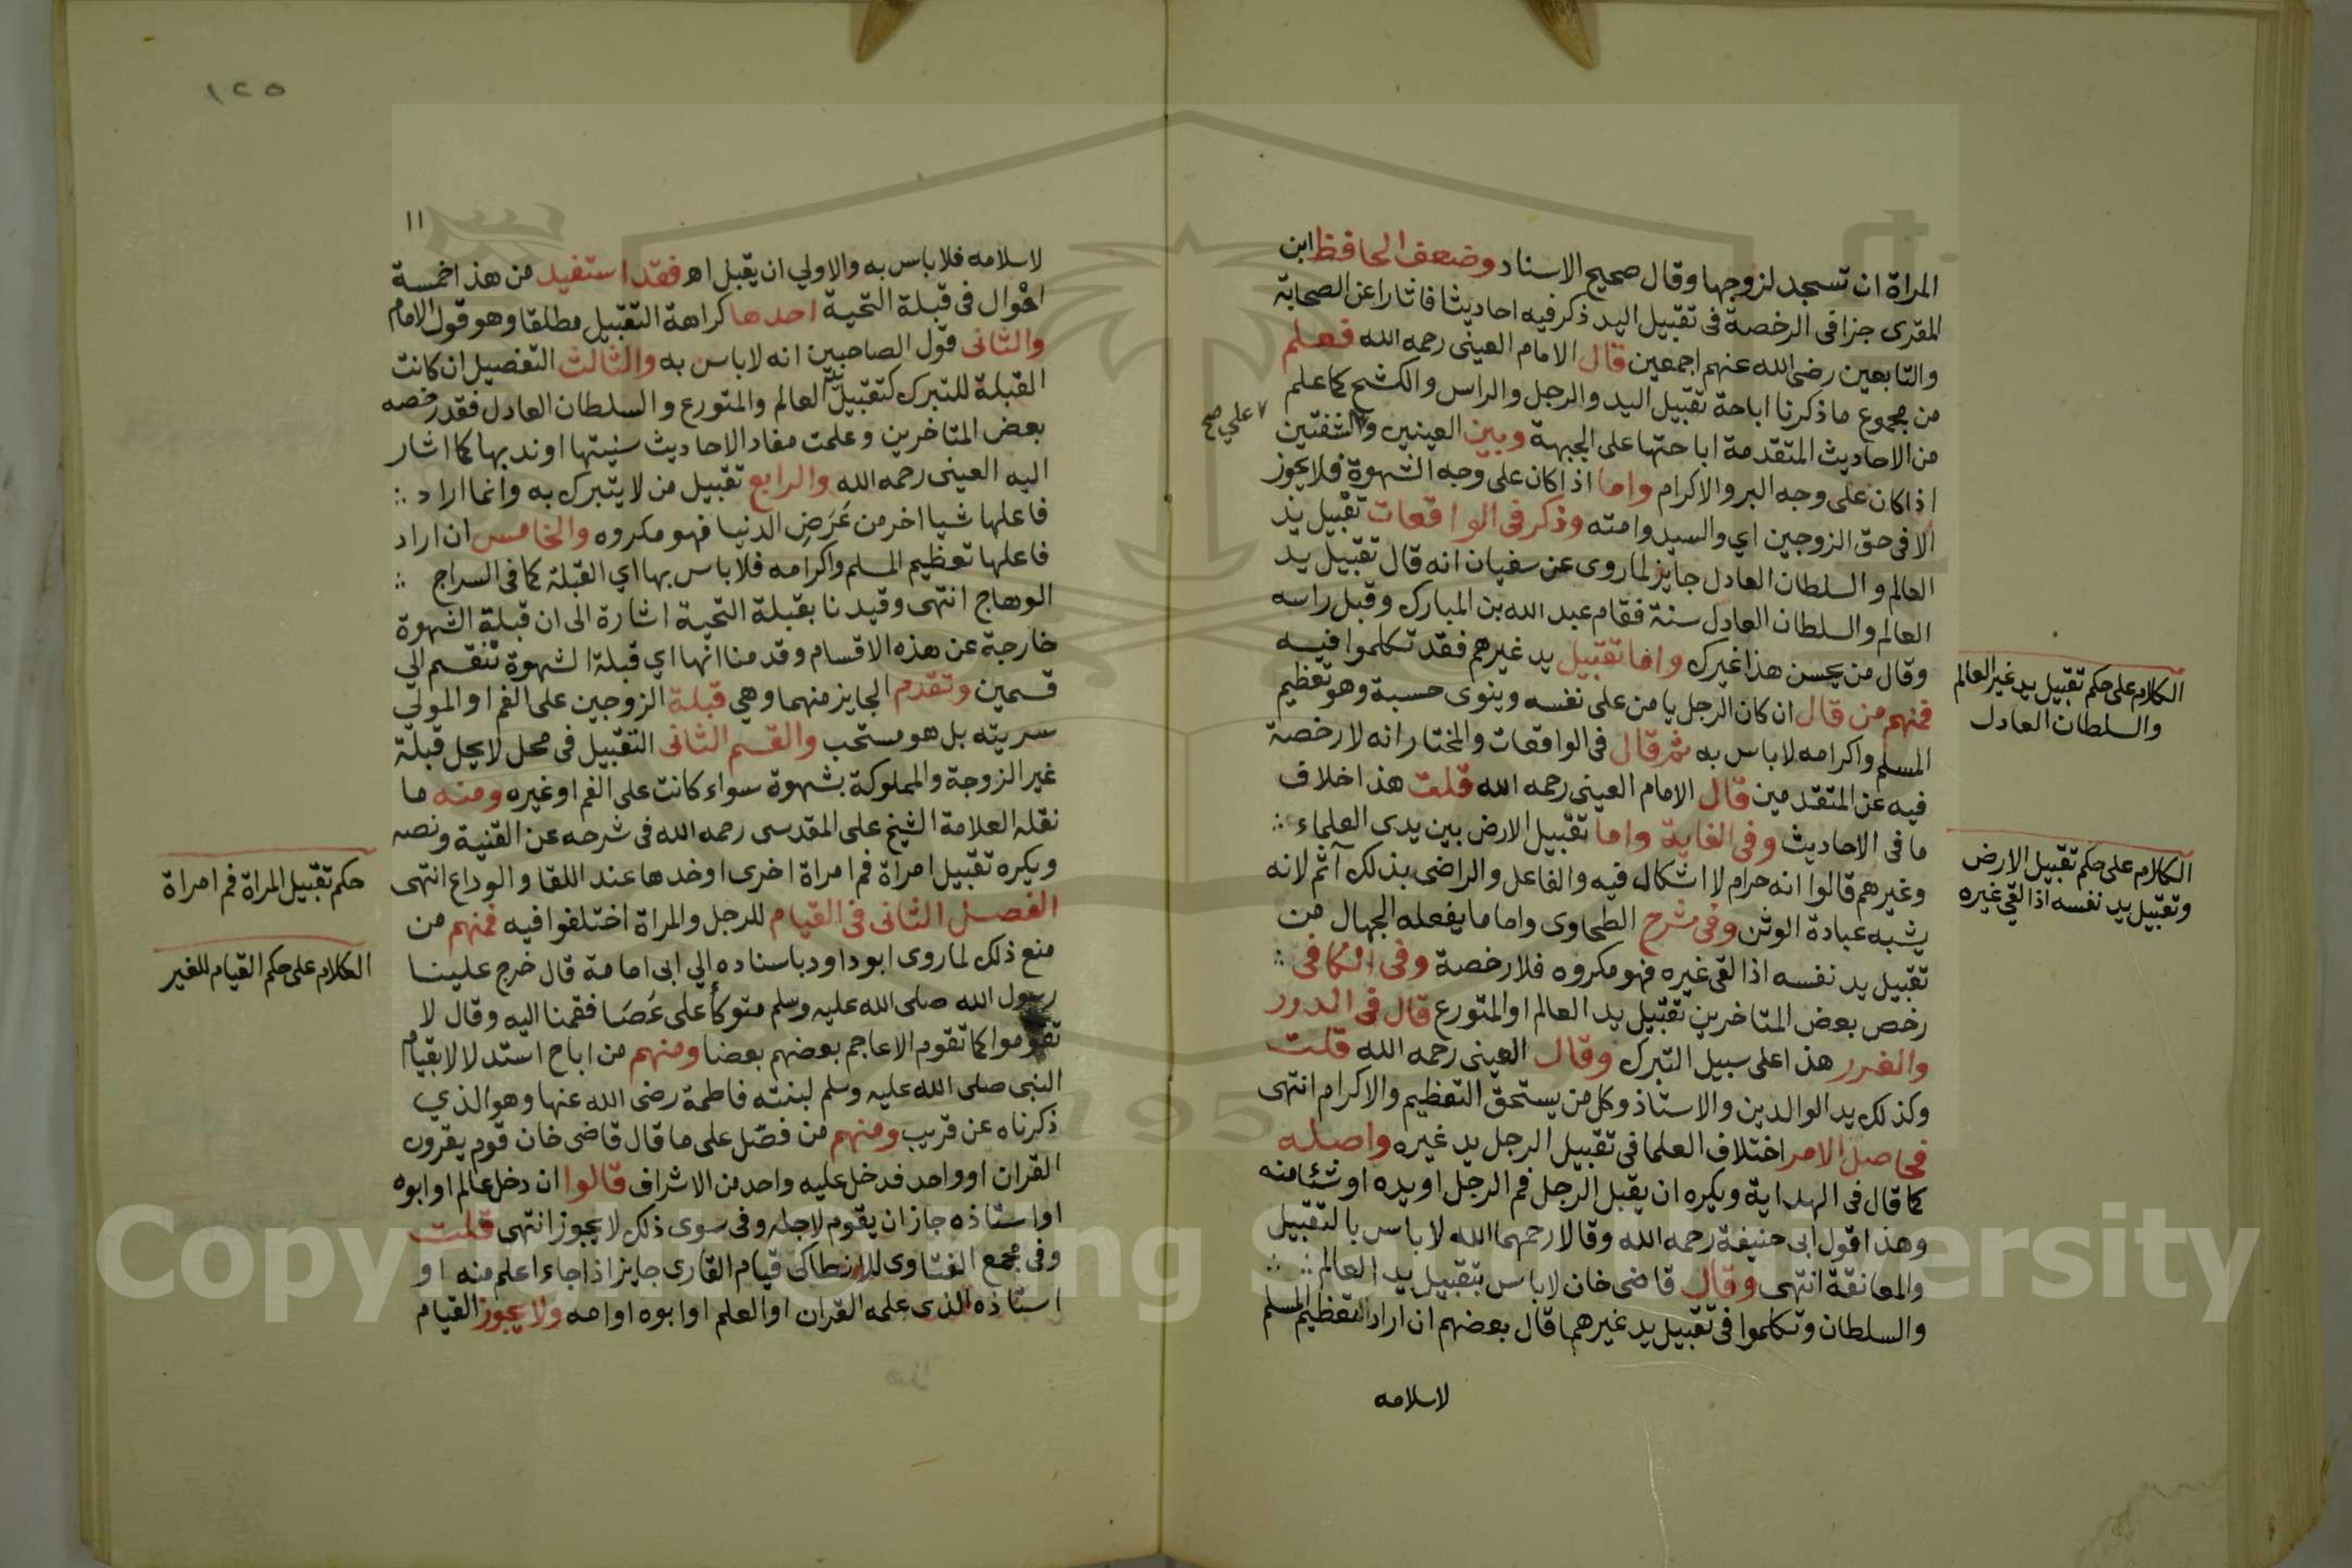 المراة ان تسجد لزوجها وقال صحيح الاسناد وضعف الحافظ ابن
المقرى جزا في الرخصة في تقبيل اليد ذكر فيه احاديثا فاثارا عن الصحابة
والتابعين رضى الله عنهم اجمعين قال الامام العينى رحمه الله فعلم
من مجموع ما ذكرنا اباحة تقبيل اليد والرجل والراس والكشح كما علم
من الاحاديث المتقدمة اباحتها على الجبهة وبين العينين والشفتين
على صح
اذا كان على وجه البر والاكرام واما اذا كان على وجه الشهوة فلا يجوز
الا فى حق الزوجين اي والسيد وامته وذكر فى الواقعات تقبيل يد
العالم والسلطان العادل جايز لما روى عن سفيان انه قال تقبيل يد
العالم والسلطان العادل سنة فقام عبد الله بن المبارك وقبل راسه
وقال من يحسن هذا غيرك واما تقبيل يد غيرهم فقد تكلموا فيه
فمنهم من قال ان كان الرجل يامن على نفسه وينوى حسبة وهو تعظيم
المسلم واكرامه لا باس به ثم قال فى الواقعات والمختار انه لا رخصة
فيه عن المتقدمين قال الامام العينى رحمه الله قلت هذا خلاف
ما فى الاحاديث وفى الغاية واما تقبيل الارض بين يدى العلماء
وغيرهم قالوا انه حرام لا اشكال فيه والفاعل والراضى بذلك آثم لانه
يشبه عبادة الوثن وفى شرح الطحاوى واما ما يفعله الجهال من
تقبيل يد نفسه اذا لقى غيره فهو مكروه فلا رخصة وفى الكافى
رخص بعض المتاخرين تقبيل يد العالم او المتورع قال فى الدرر
والغرر هذا على سبيل التبرك وقال العينى رحمه الله قلت
وكذلك يد الوالدين والاستاذ وكل من يستحق التعظيم والاكرام انتهى
فحاصل الامر اختلاف العلما فى تقبيل الرجل يد غيره واصله
كما قال فى الهداية ويكره ان يقبل الرجل فم الرجل او يده او شئا منه
وهذا قول ابى حنيفة رحمه الله وقالا رحمهما الله لا باس بالتقبيل
والمعانقة انتهى وقال قاضى خان لا باس بتقبيل يد العالم
والسلطان وتكلموا فى تقبيل يد غيرهما قال بعضهم ان اراد التعظيم المسلم
لاسلامه
الكلام على حكم تقبيل يد غير العالم
والسلطان العادل
الكلام على حكم تقبيل الارض
وتقبيل يد نفسه اذا لقي غيره
١٢٥
١١
لاسلامه فلا باس به والاولي ان يقبل اهـ فقد استفيد من هذا خمسة
احوال فى قبلة التحية احدها كراهة التقبيل مطلقا وهو قول الامام
والثانى قول الصاحبين انه لا باس به والثالث التفصيل ان كانت
القبلة للتبرك كتقبيل يد العالم والمتورع والسلطان العادل فقد رخصه
بعض المتاخرين وعلمت مفاد الاحاديث سنيتها او ندبها كما اشار
اليه العينى رحمه الله والرابع تقبيل من لا يتبرك به وانما اراد
فاعلها شيا اخر من عَرَضِ الدنيا فهو مكروه والخامس ان اراد
فاعلها تعظيم المسلم واكرامه فلا باس بها اي القبلة كما فى السراج
الوهاج انتهى وقيدنا بقبلة التحية اشارة الى ان قبلة الشهوة
خارجة عن هذه الاقسام وقدمنا انها اي قبلة الشهوة تنقسم الي
قسمين وتقدم الجايز منهما وهي قبلة الزوجين على الفم او المولي
سريته بل هو مستحب والقسم الثانى التقبيل فى محل لا يحل قبلة
غير الزوجة والمملوكة بشهوة سواء كانت على الفم او غيره ومنه ما
نقله العلامة الشيخ على المقدسى رحمه الله فى شرحه عن القنية ونصه
ويكره تقبيل امرأة فم امراة اخرى او خدها عند اللقا والوداع انتهى
الفصل الثانى فى القيام للرجل والمراة اختلفوا فيه فمنهم من
منع ذلك لما روى ابو داود باسناده الي ابى امامة قال خرج علينا
رسول الله صلى الله عليه وسلم متوكأ على عَصَا فقمنا اليه وقال لا
تقوموا كما تقوم الاعاجم بعضهم بعضا ومنهم من اباح استدلالا بقيام
النبى صلى الله عليه وسلم لبنته فاطمة رضى الله عنها وهو الذي
ذكرناه عن قريب ومنهم من فصّل على ما قال قاضى خان قوم يقرون
القران او واحد فدخل عليه واحد من الاشراف قالوا ان دخل عالم او ابوه
او استاذه جاز ان يقوم لاجله وفى سوى ذلك لا يجوز انتهى قلت
وفى مجمع الفتاوى للانطاكى قيام القارى جايز اذا جاء اعلم منه او
استاذه الذى علمه القران او العلم او ابوه او امه ولا يجوز القيام
حكم تقبيل المراة فم امراة
الكلام على حكم القيام للغير
Copyright © King Saud University
195